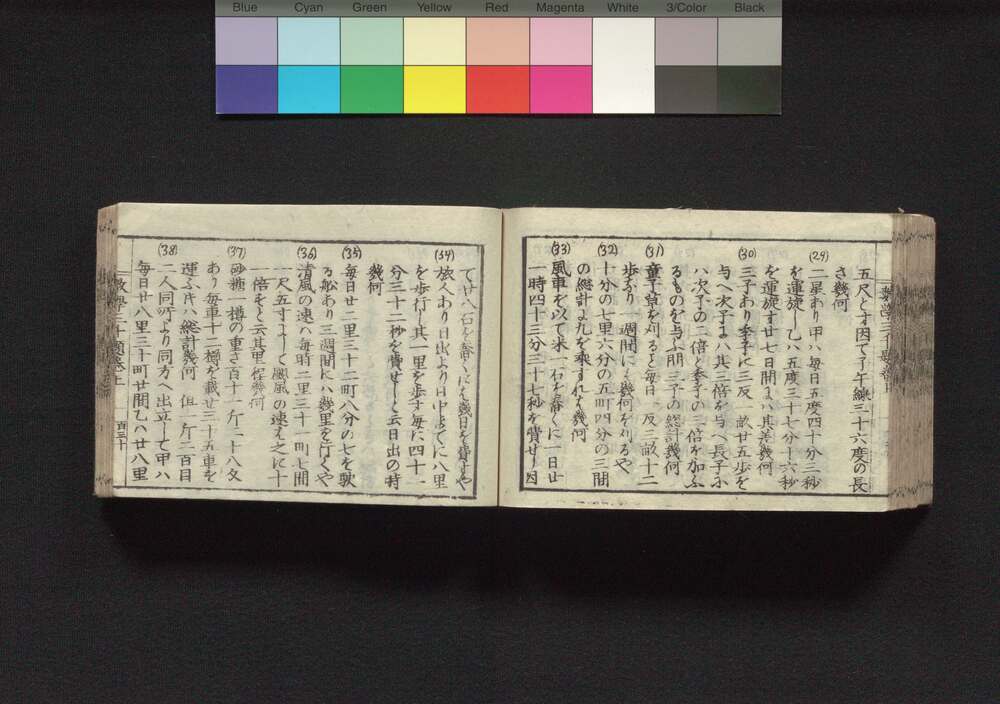 Blue Cyan Green Yellow Red Magenta White 3/Color Black
五尺とす因て子午線三十六度の長
さ幾何
(29) 二星あり甲ハ毎日五度四十分三秒
を運旋し乙ハ五度三十七分十六秒
を運旋す廿七日間にハ其差幾何
(30) 三子あり季子に三反一畝廿五歩を
与へ次子にハ其三倍を与へ長子に
ハ次子の二倍と季子の二倍を加ふ
るものを与ふ朋三子の総計幾何
(31) 童子草を刈ると毎日一反二畝十二
歩なり一週間にハ幾何を刈るや
(32) 十分の七里六分の五町四分の三間
の総計に九を乗すれハ幾何
(33) 風車を以て米一石を舂くに一日廿
一時四十三分三十七秒を費せり因
て廿八石を舂くにハ幾日を費すや
(34) 旅人あり日出より日中までに八里
を歩行し其一里を歩す毎に四十一
分三十二秒を費せしと云日出の時
幾何
(35) 毎日廿二里三十二町八分の七を駛
る舩あり三週間にハ幾里を行くや
(36) 清風の速ハ毎時二里三十一町七間
一尺五寸にして颶風の速ハ之に十
倍をと云其里程幾何
(37) 砂糖一樽の重さ百十一斤二十八匁
あり毎車十二樽を載せ三十五車を
運ふ片ハ総計幾何 但一斤二百目
(38) 二人同町より同方へ出立して甲ハ
毎日廿八里三十町廿間乙ハ廿八里
百三十